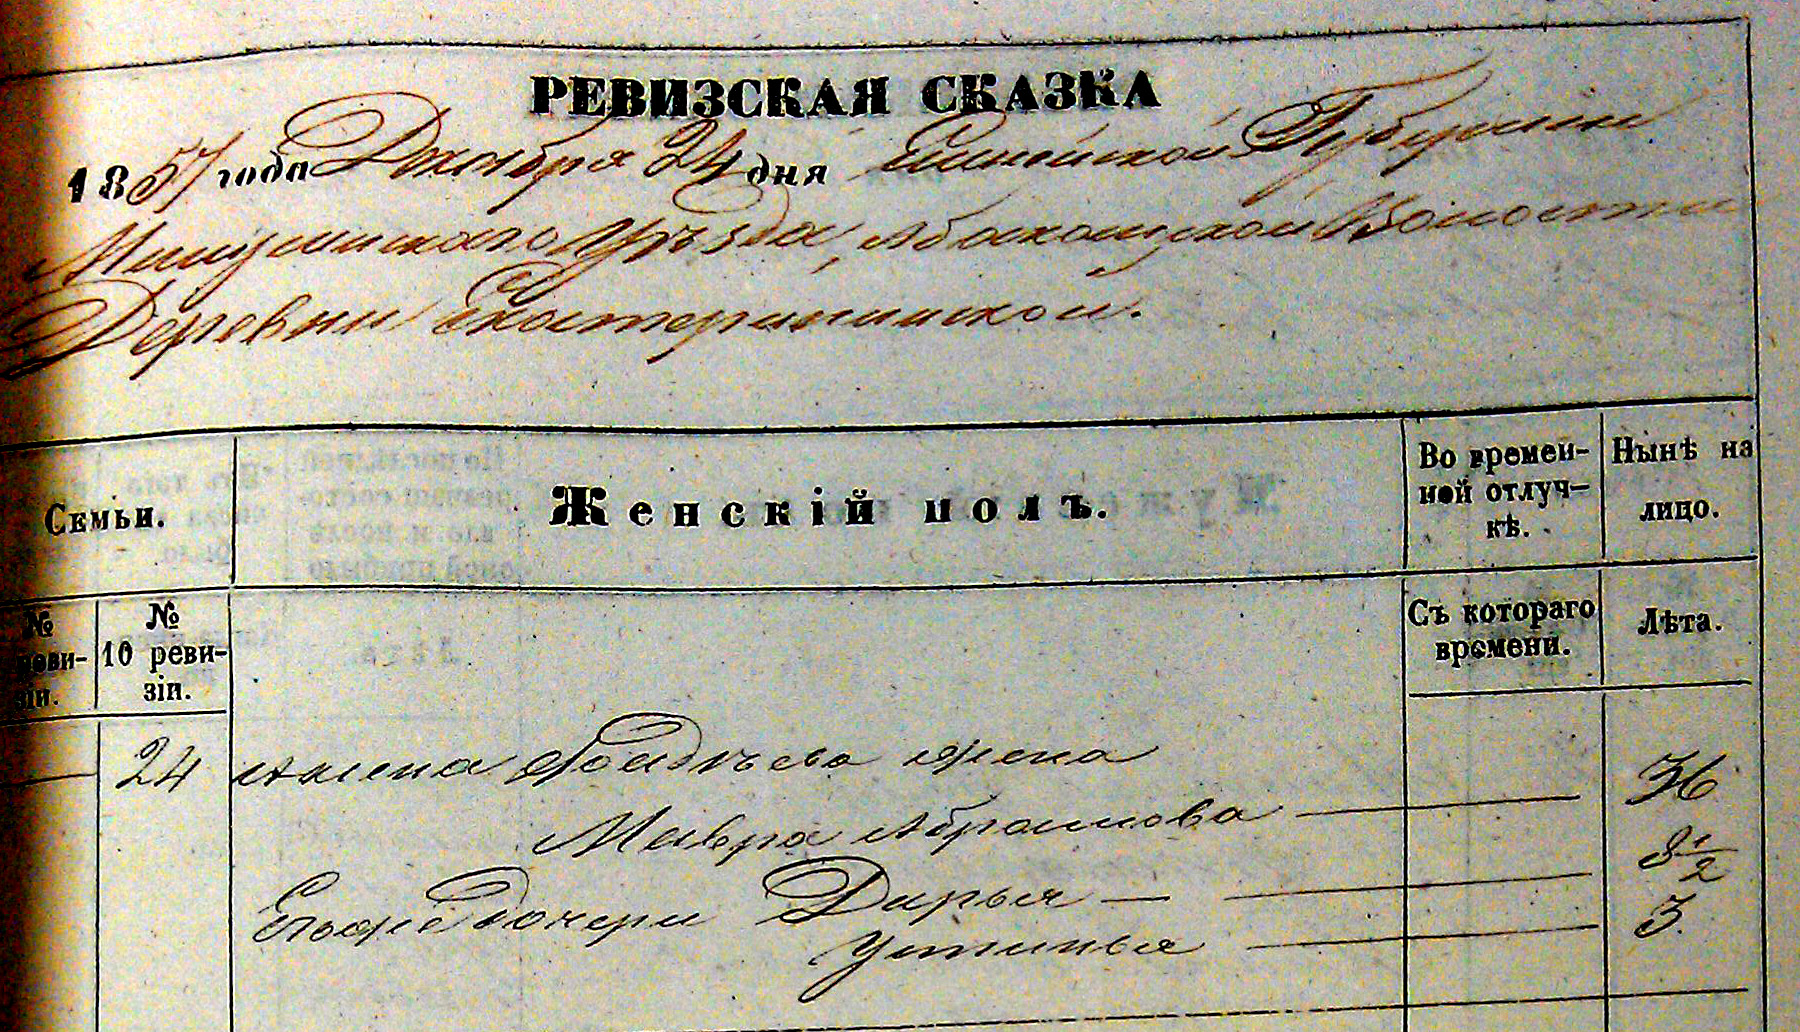 РЕВИЗСКАЯ СКАЗКА
1857 года Декабря 24 дня Енисейской Губернии
Минусинскаго Округа, Абаканской Волости
Деревни Екатерининской.
Семьи.
Женскій полъ.
Во времен-
ной отлуч-
кѣ.
Нынѣ на
лицо.
№
реви-
зіи.
№
10 реви-
зіи.
Съ котораго
времени.
Лѣта.
24 жена
Мавра Абрамова 36
Егоже дочери Дарья 8 1/2
Устинья 3.